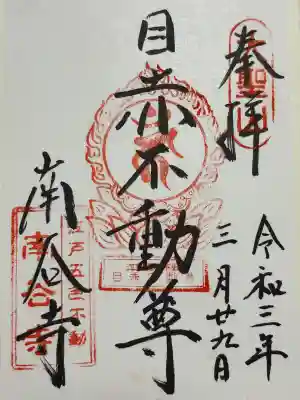 奉拝
令和三年
三月廿九日
目赤不動尊
南谷寺
江戸五色不動
南谷寺